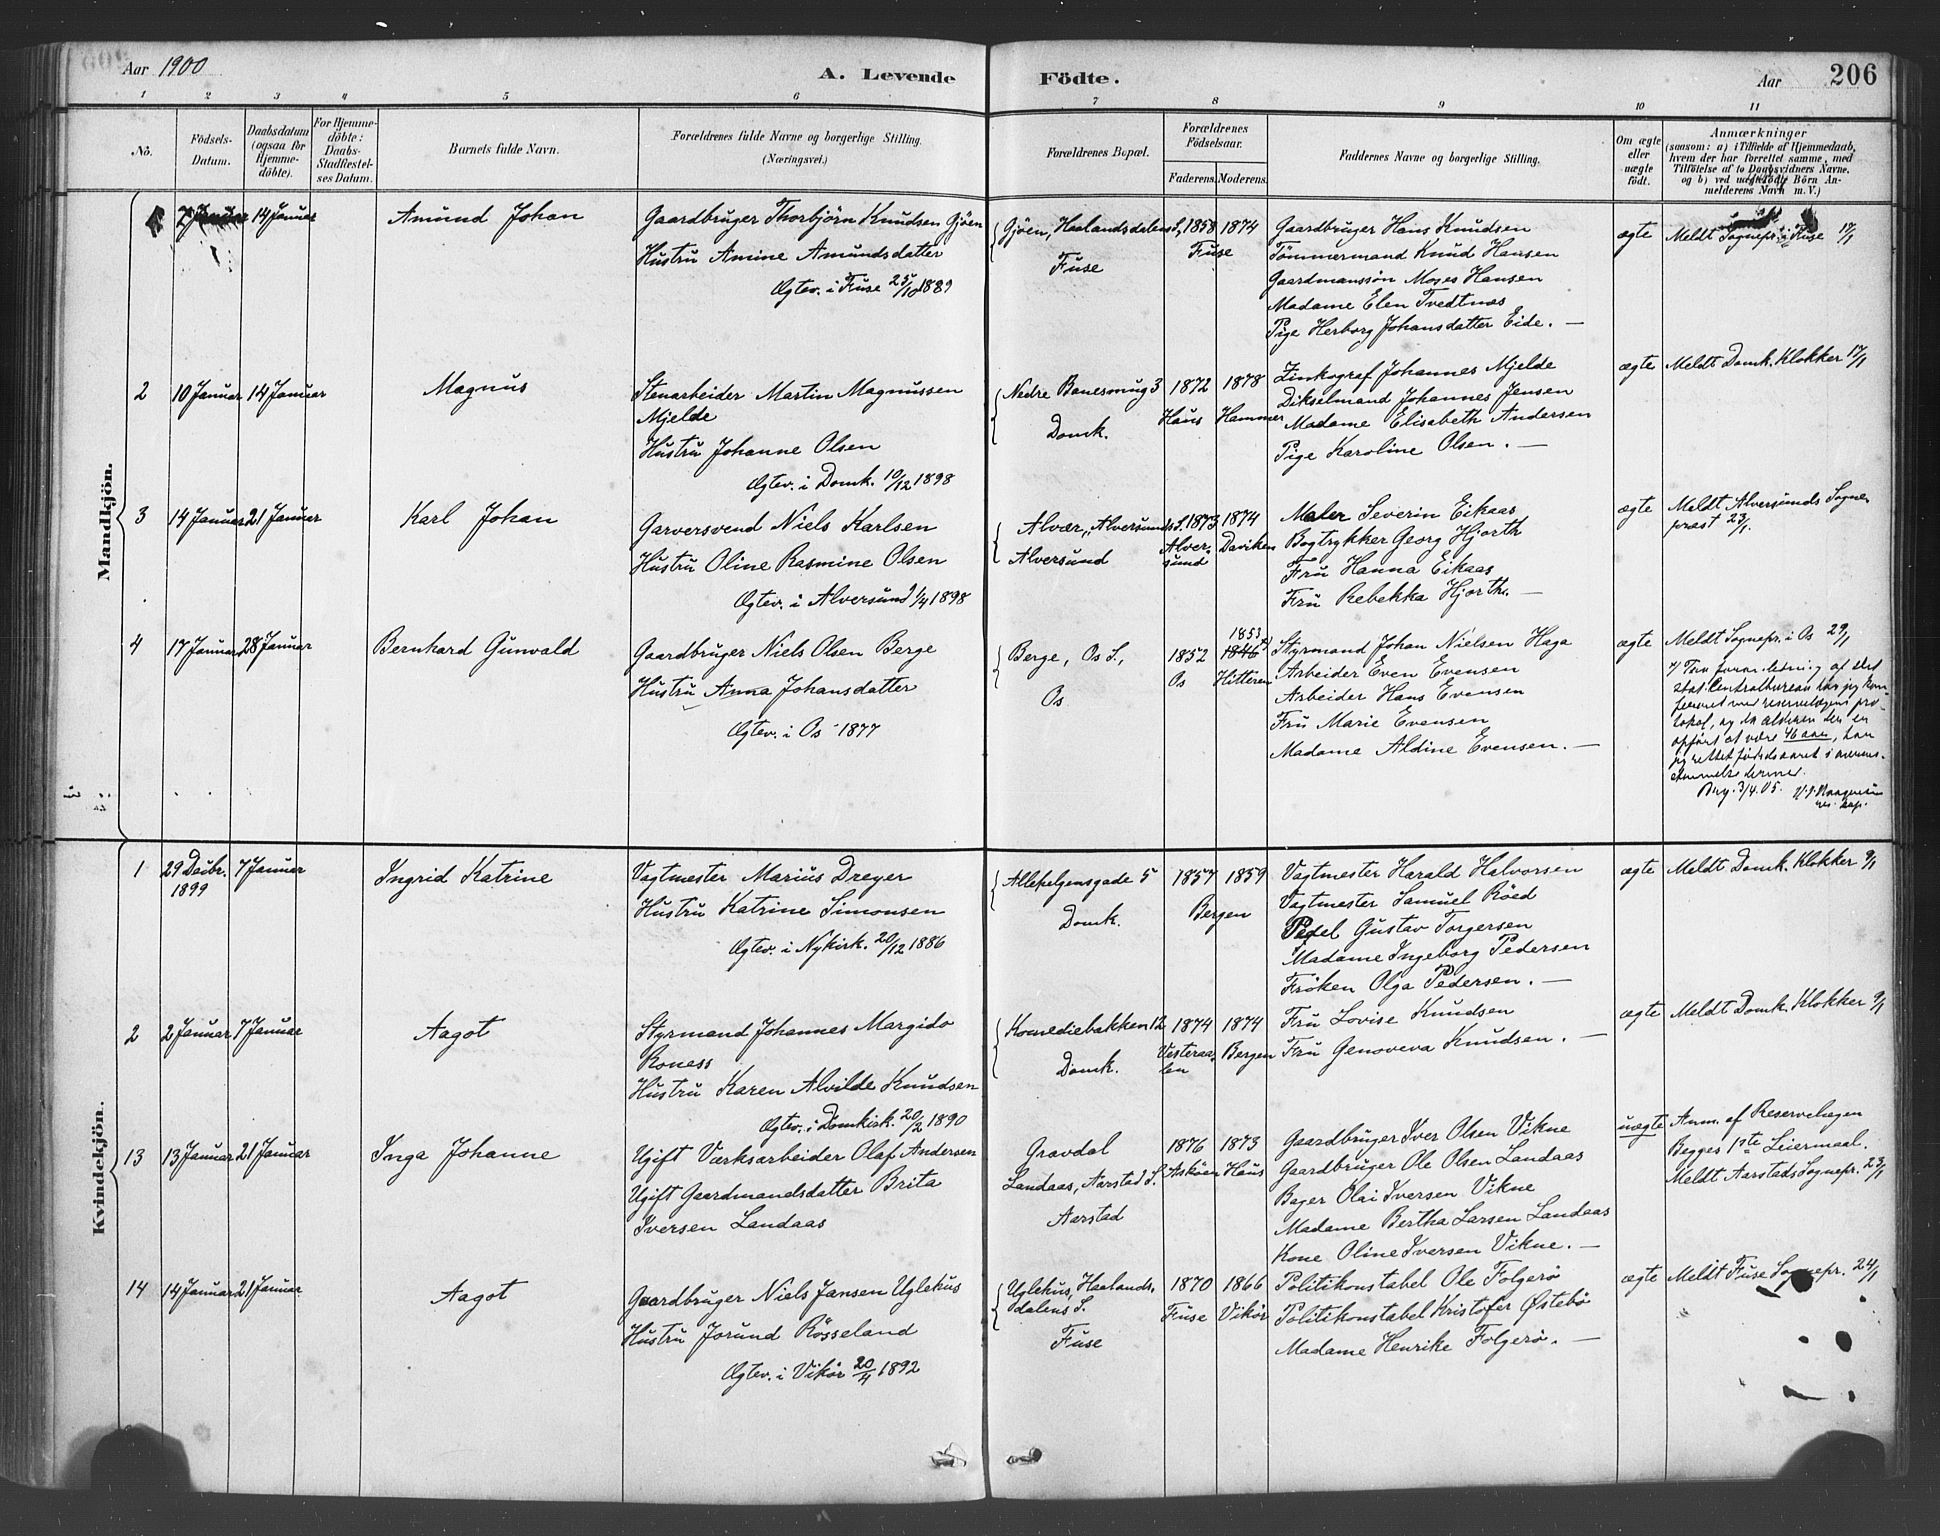 Aar 1900
A. Levende Födte.
Aar 206
1 2 3 4 5 6 7 8 9 10 11
Nö.
Födsels-Datum.
Daabsdatum (ogsaa for Hjemmedöbte).
For Hjemmedöbte: Daabs-Stadfæstelses Datum.
Barnets fulde Navn.
Forældrenes fulde Navne og borgerlige Stilling.
(Næringsvei.)
Forældrenes Bopæl.
Forældrenes Födselsaar.
Faderens. Moderens.
Faddernes Navne og borgerlige Stilling.
Om ægte eller uægte födt.
Anmærkninger
(saasom: a) i Tilfælde af Hjemmedaab, hvem der har forrettet samme, med Tilföielse af to Daabsvidners Navne, og b) ved uægtefödte Börn Anmelderens Navn m. V.)
Mandkjön.
7 Januar 14 Januar
Amund Johan
Gaardbruger Thorbjörn Knudsen Gjöen
Hustru Amine Amundsdatter
Ægtev. i Fuse 25/10 1889
Gjöen, Haalandsdalens S.,
Fuse
1858 1874
Fuse
Gaardbruger Hans Knudsen
Tömmermand Knud Hansen
Gaardmanssön Moses Hansen
Madame Elen Tvedtnæs
Pige Herborg Johansdatter Eide. —
ægte
Meldt Sognepr. i Fuse 17/1
2
10 Januar 14 Januar
Magnus
Stenarbeider Martin Magnussen
Mjelde
Hustru Johanne Olsen
Ægtev. i Domk. 10/12 1898
Nedre Banesmug 3
Domk.
1872 1878
Haus Hammer
Zinkograf Johannes Mjelde
Dikselmand Johannes Jensen
Madame Elisabeth Andersen
Pige Karoline Olsen. —
ægte
Meldt Domk. Klokker 17/1
3
14 Januar 21 Januar
Karl Johan
Garversvend Niels Karlsen
Hustru Oline Rasmine Olsen
Ægtev. i Alversund 1/4 1898
Alvær, Alversunds S.
Alversund
1873 1874
Alversund Daviken
Maler Severin Eikaas
Bogtrykker Georg Hjorth
Fru Hanna Eikaas
Fru Rebekka Hjorth. —
ægte
Meldt Alversunds Sogne-
præst 23/1.
4
17 Januar 28 Januar
Bernhard Gunvald
Gaardbruger Niels Olsen Berge
Hustru Anna Johansdatter
Ægtev. i Os - 1877
Berge, Os S.,
Os
1853
1852 1846
Os Hitteren
Styrmand Johan Nielsen Haga
Arbeider Even Evensen
Arbeider Hans Evensen
Fru Marie Evensen
Madame Aldine Evensen. —
ægte
Meldt Sognepr. i Os 29/1
foranledning af det
stat. Centralbureau har jeg kon-
fereret med reservelægens pro-
tokol, og da alderen der er
opført at være 46 aar, har
jeg rettet fødselsaaret i overens-
stemmelse dermed.
Brg. 3/4. 05.
Kvindekjön.
1
29 Decbr. 1899
7 Januar
Ingrid Katrine
Vagtmester Marius Dreyer
Hustru Katrine Simonsen
Ægtev. i Nykirk. 20/12 1886
Allehelgensgade 5
Domk.
1857 1859
Bergen
Vagtmester Harald Halvorsen
Vagtmester Samuel Röed
Pedel Gustav Torgersen
Madame Ingeborg Pedersen
Fröken Olga Pedersen. —
ægte
Meldt Domk. Klokker 9/1
2
2 Januar 7 Januar
Aagot
Styrmand Johannes Margido
Roness
Hustru Karen Alvilde Knudsen
Ægtev. i Domkirk. 20/2 1890
Komediebakken 12
Domk.
1874 1874
Vesteraalen Bergen
Fru Lovise Knudsen
Fru Genoveva Knudsen. —
ægte
Meldt Domk. Klokker 9/1
13
13 Januar 21 Januar
Inga Johanne
Ugift Værksarbeider Olaf Andersen
Ugift Gaardmandsdatter Brita
Iversen Landaas
Gravdal
Landaas, Aarstad S.
Aarstad
1876 1873
Asköen Haus
Gaardbruger Iver Olsen Vikne
Gaardbruger Ole Olsen Landaas
Bager Olai Iversen Vikne
Madame Bertha Larsen Landaas
Kone Oline Iversen Vikne. —
uægte
Anm. af Reservelægen
Begges 1ste Leiermaal.
Meldt Aarstads Sognepr. 23/1
14
14 Januar 21 Januar
Aagot
Gaardbruger Niels Jansen Uglehus
Hustru Jorund Rösseland
Ægtev. i Vikör 20/4 1892
Uglehus, Haalands-
dalens S.
Fuse
1870 1866
Fuse Vikör
Politikonstabel Ole Folgerö
Politikonstabel Kristofer Östebö
Madame Henrike Folgerö. —
ægte
Meldt Fuse Sognepr. 24/1